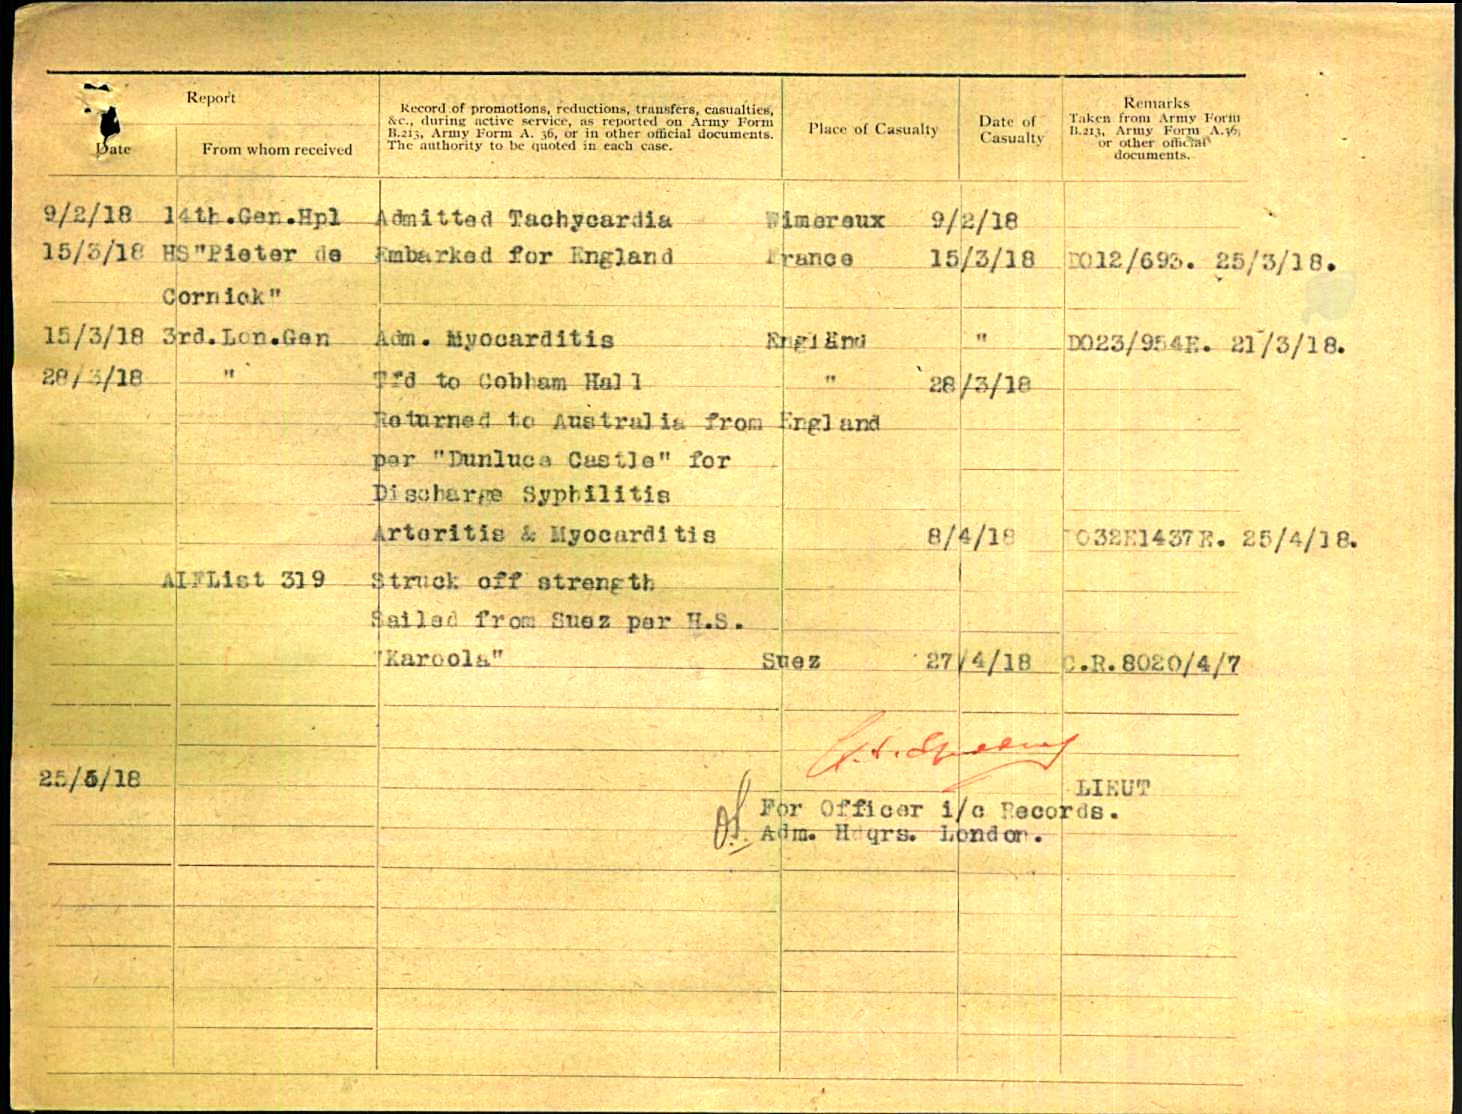 Report
Date
From whom received
Record of promotions, reductions, transfers, casualties,
&c., during active service, as reported on Army Form
B.213, Army Form A. 36, or in other official documents.
The authority to be quoted in each case.
Place of Casualty
Date of
Casualty
Remarks
Taken from Army Form
B.213, Army Form A.36,
or other official
documents.
9/2/18 14th.Gen.Hpl Admitted Tachycardia Wimereux 9/2/18
15/3/18 HS"Pieter de Embarked for England France 15/3/18 DO12/693. 25/3/18.
Cornick"
15/3/18 3rd.Lon.Gen Adm. Myocarditis England " DO23/954E. 21/3/18.
28/3/18 " Tfd to Cobham Hall " 28/3/18
Returned to Australia from England
per "Dunluce Castle" for
Discharge Syphilitis
Arteritis & Myocarditis 8/4/18 DO32E1437E. 25/4/18.
AIFList 319 Struck off strength
Sailed from Suez per H.S.
"Karoola" Suez 27/4/18 C.R.8020/4/7
25/5/18
LIEUT
For Officer i/c Records.
Adm. Hdqrs. London.